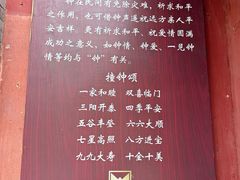 钟在民间有免除灾难，祈求和平
之作用，也可借钟声遥祝远方亲人平
安吉祥。更有祈求和平、祝爱情圆满
成功之意义，如钟情、钟爱、一见钟
情等均与“钟”有关。
撞钟颂
一家和睦 双喜临门
三阳开泰 四季平安
五谷丰登 六六大顺
七星高照 八方进宝
九九大寿 十全十美